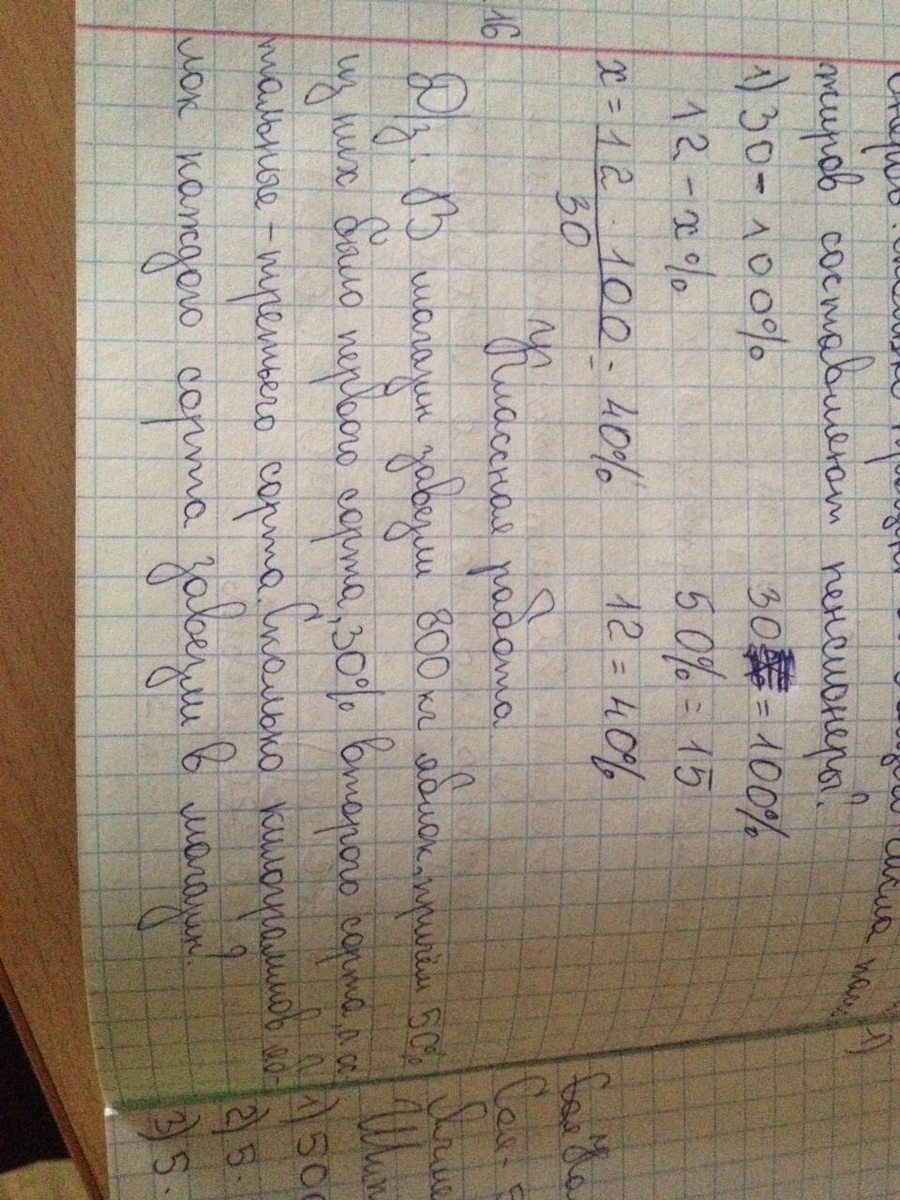 жиров составляют пенсионеры?
1) 30 - 100%
12 - x %
x = 12 · 100 = 40%
30
30 = 100%
50% = 15
12 = 40%
16
Классная работа
Д/з: В магазин завезли 800 кг яблок, причём 50%
из них было первого сорта, 30% второго сорта, а ос
тальные - третьего сорта. Сколько килограммов яб-
лок каждого сорта завезли в магазин?
1)
1) 500
2) 5.
3) 5.